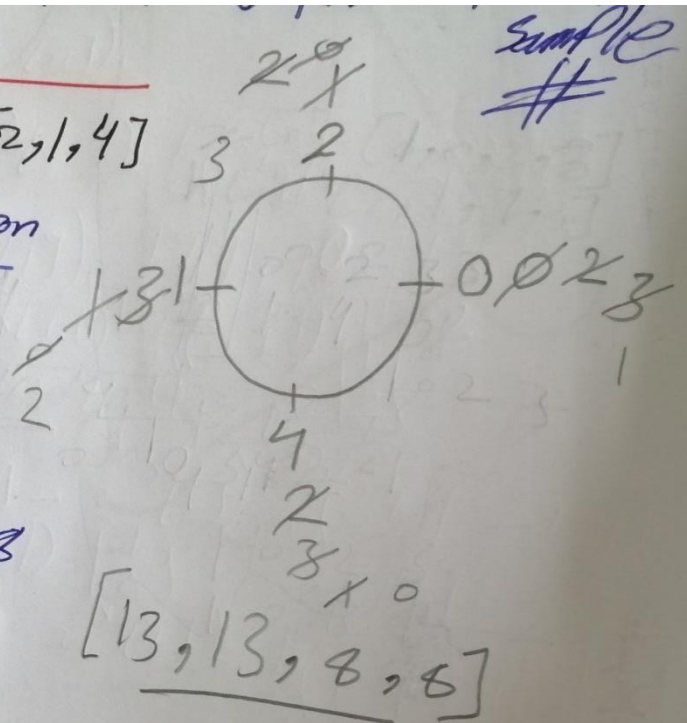 Sample
2, 1, 4]
2 0 1
3 2
on
1 3 1 0 0 2 3
0 1
2
4
2
3 1 0
[13, 13, 8, 8]